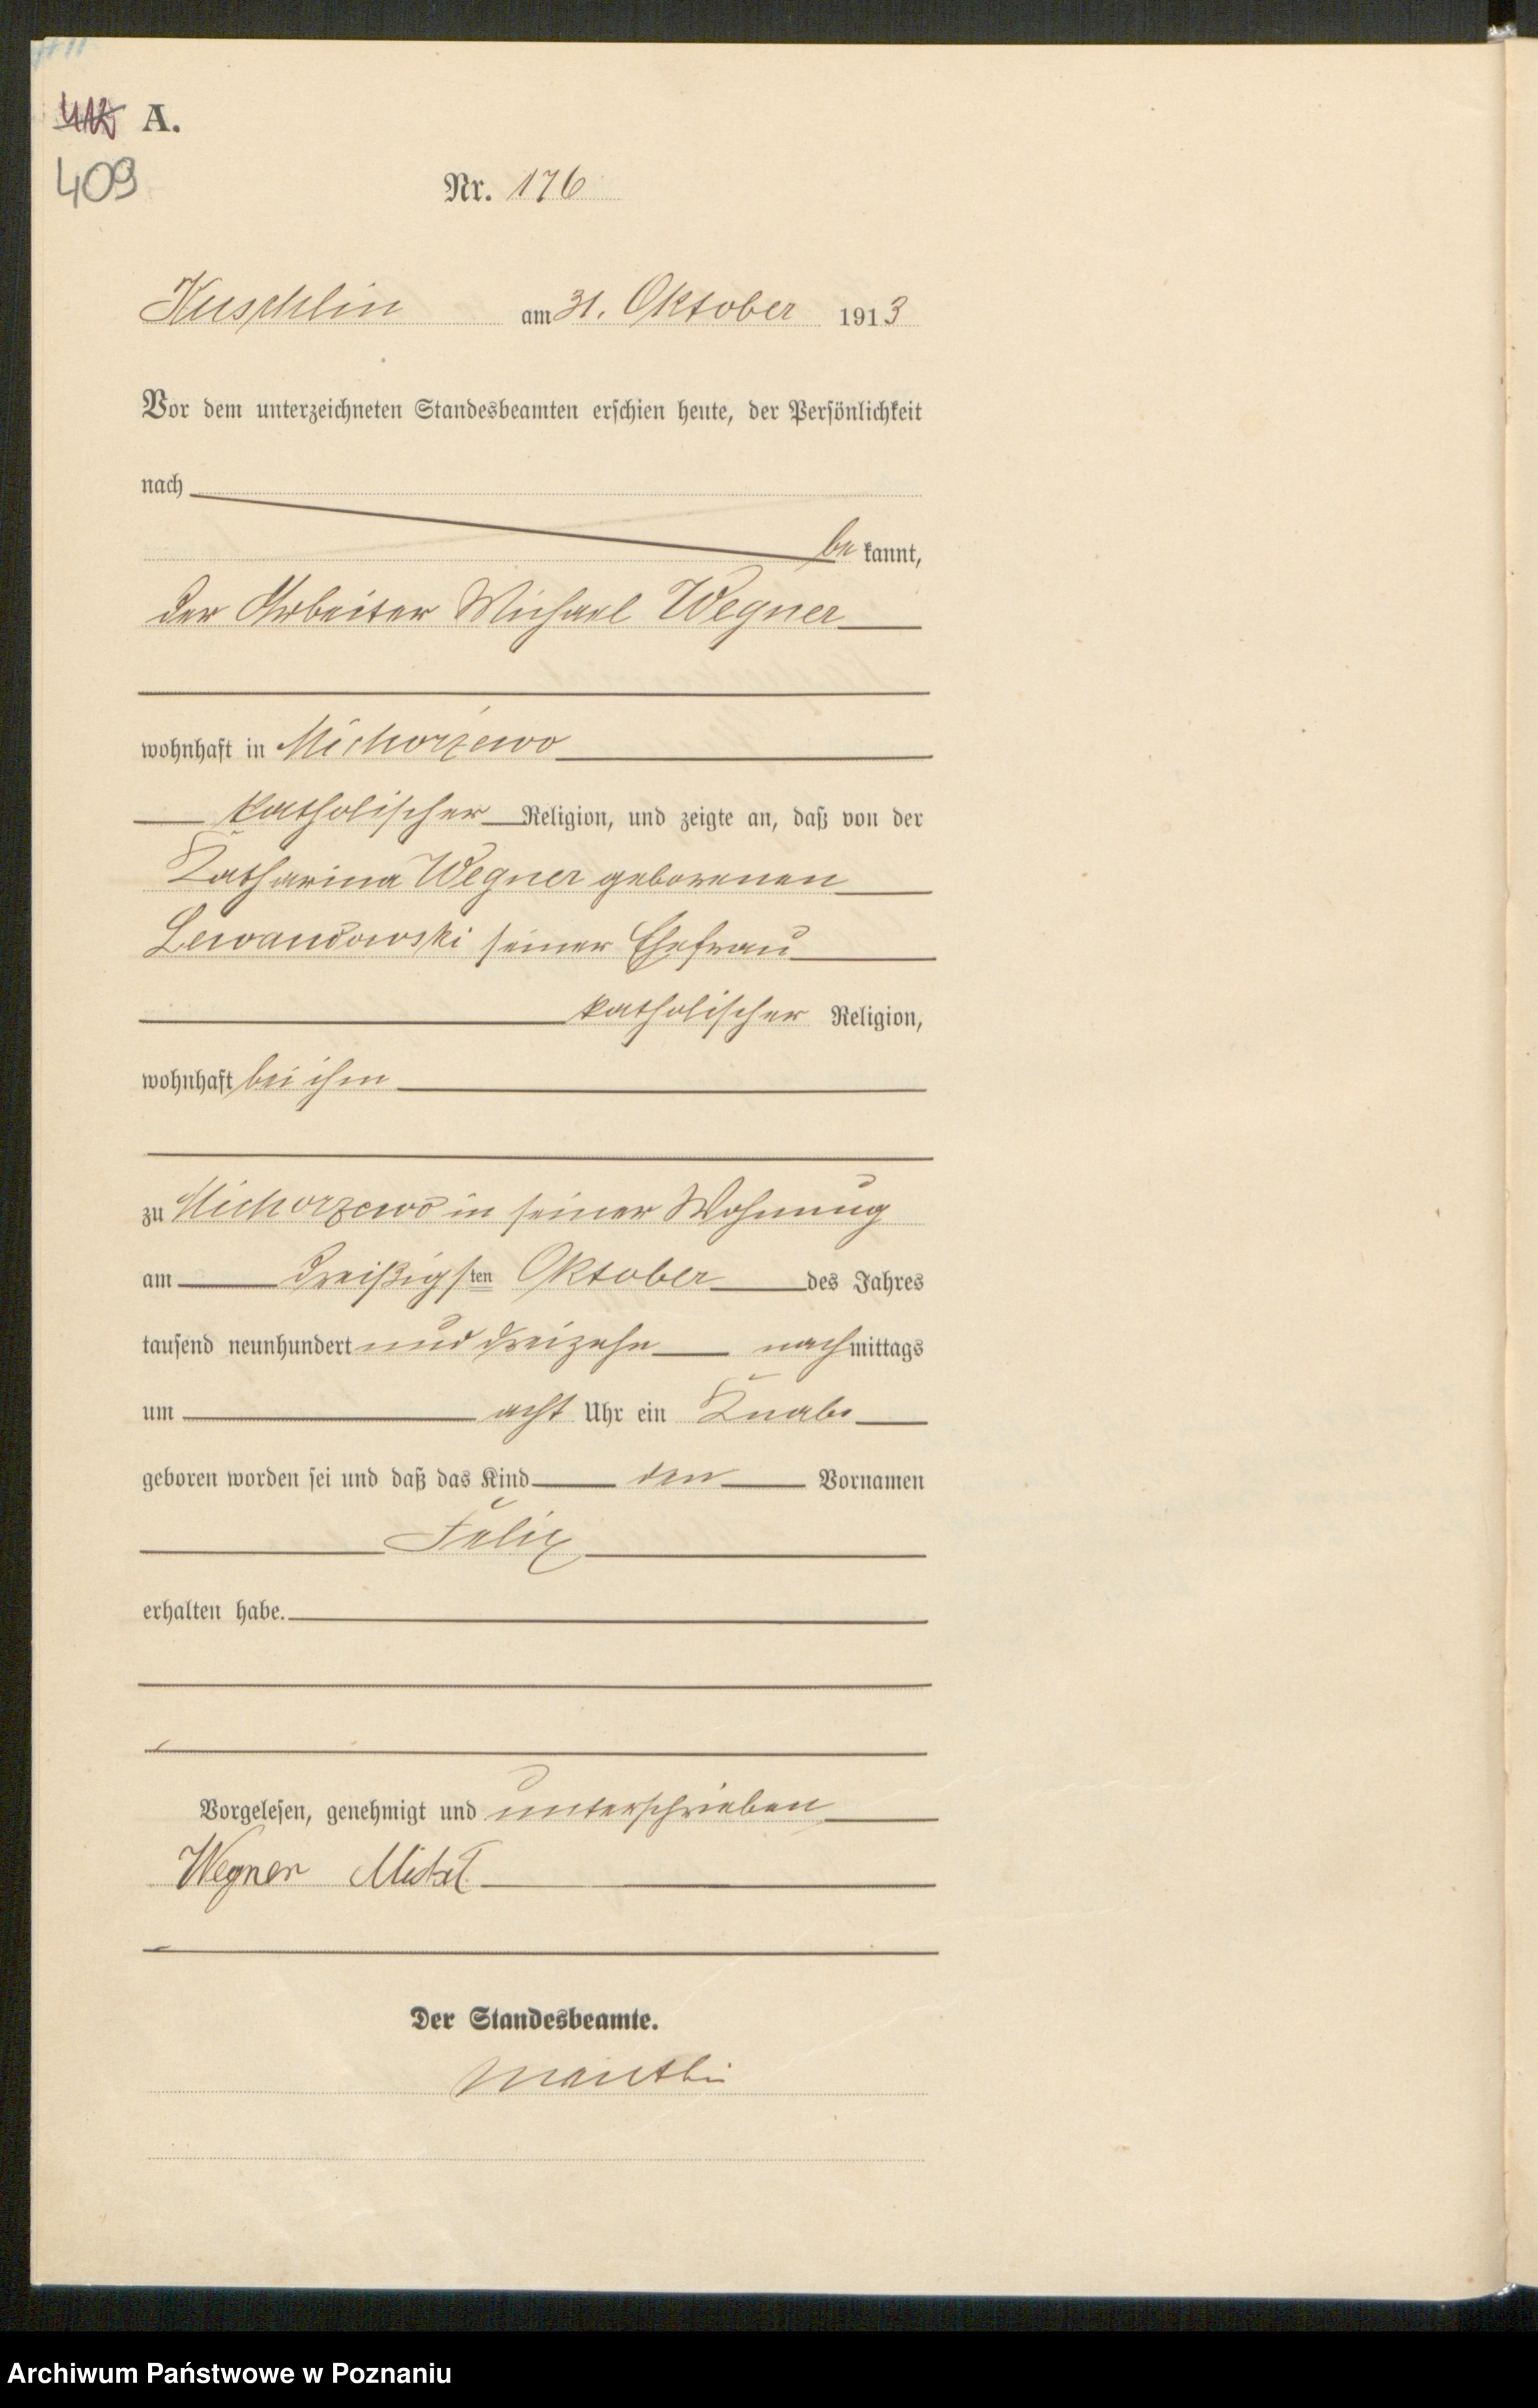 A.
409
Nr. 176
Kuschlin am 31. Oktober 1913
Vor dem unterzeichneten Standesbeamten erschien heute, der Persönlichkeit
nach
bekannt,
der Arbeiter Michael Wegner
wohnhaft in Michorzewo
katholischer Religion, und zeigte an, daß von der
Katharina Wegner geborenen
Lewandowski seiner Ehefrau
katholischer Religion,
wohnhaft bei ihm
zu Michorzewo in seiner Wohnung
am dreißigsten Oktober des Jahres
tausend neunhundert und dreizehn nachmittags
um acht Uhr ein Knabe
geboren worden sei und daß das Kind den Vornamen
Felix
erhalten habe.
Vorgelesen, genehmigt und unterschrieben
Wegner
Der Standesbeamte.
Archiwum Państwowe w Poznaniu